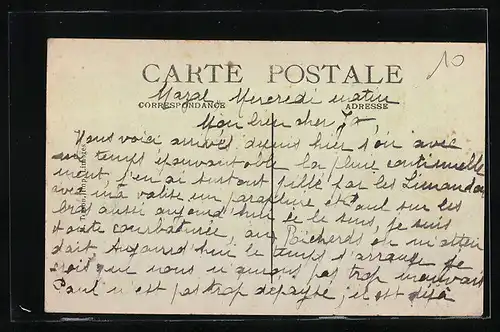 10
CARTE POSTALE
CORRESPONDANCE ADRESSE
Mazal Mercredi matin
Mon bien cher
Nous voici arrivés depuis hier soir avec
un temps épouvantable la pluie continuelle
ment j'en ai surtout
avec ma valise un parapluie et Paul sur les
bras aussi aujourd'hui je le sens, je suis
toute courbaturée, aux on m'atten
dait Aujourd'hui le temps s'arrange je
crois que nous n'aurons pas trop mauvais
Paul n'est pas trop dépaysé, il est déjà